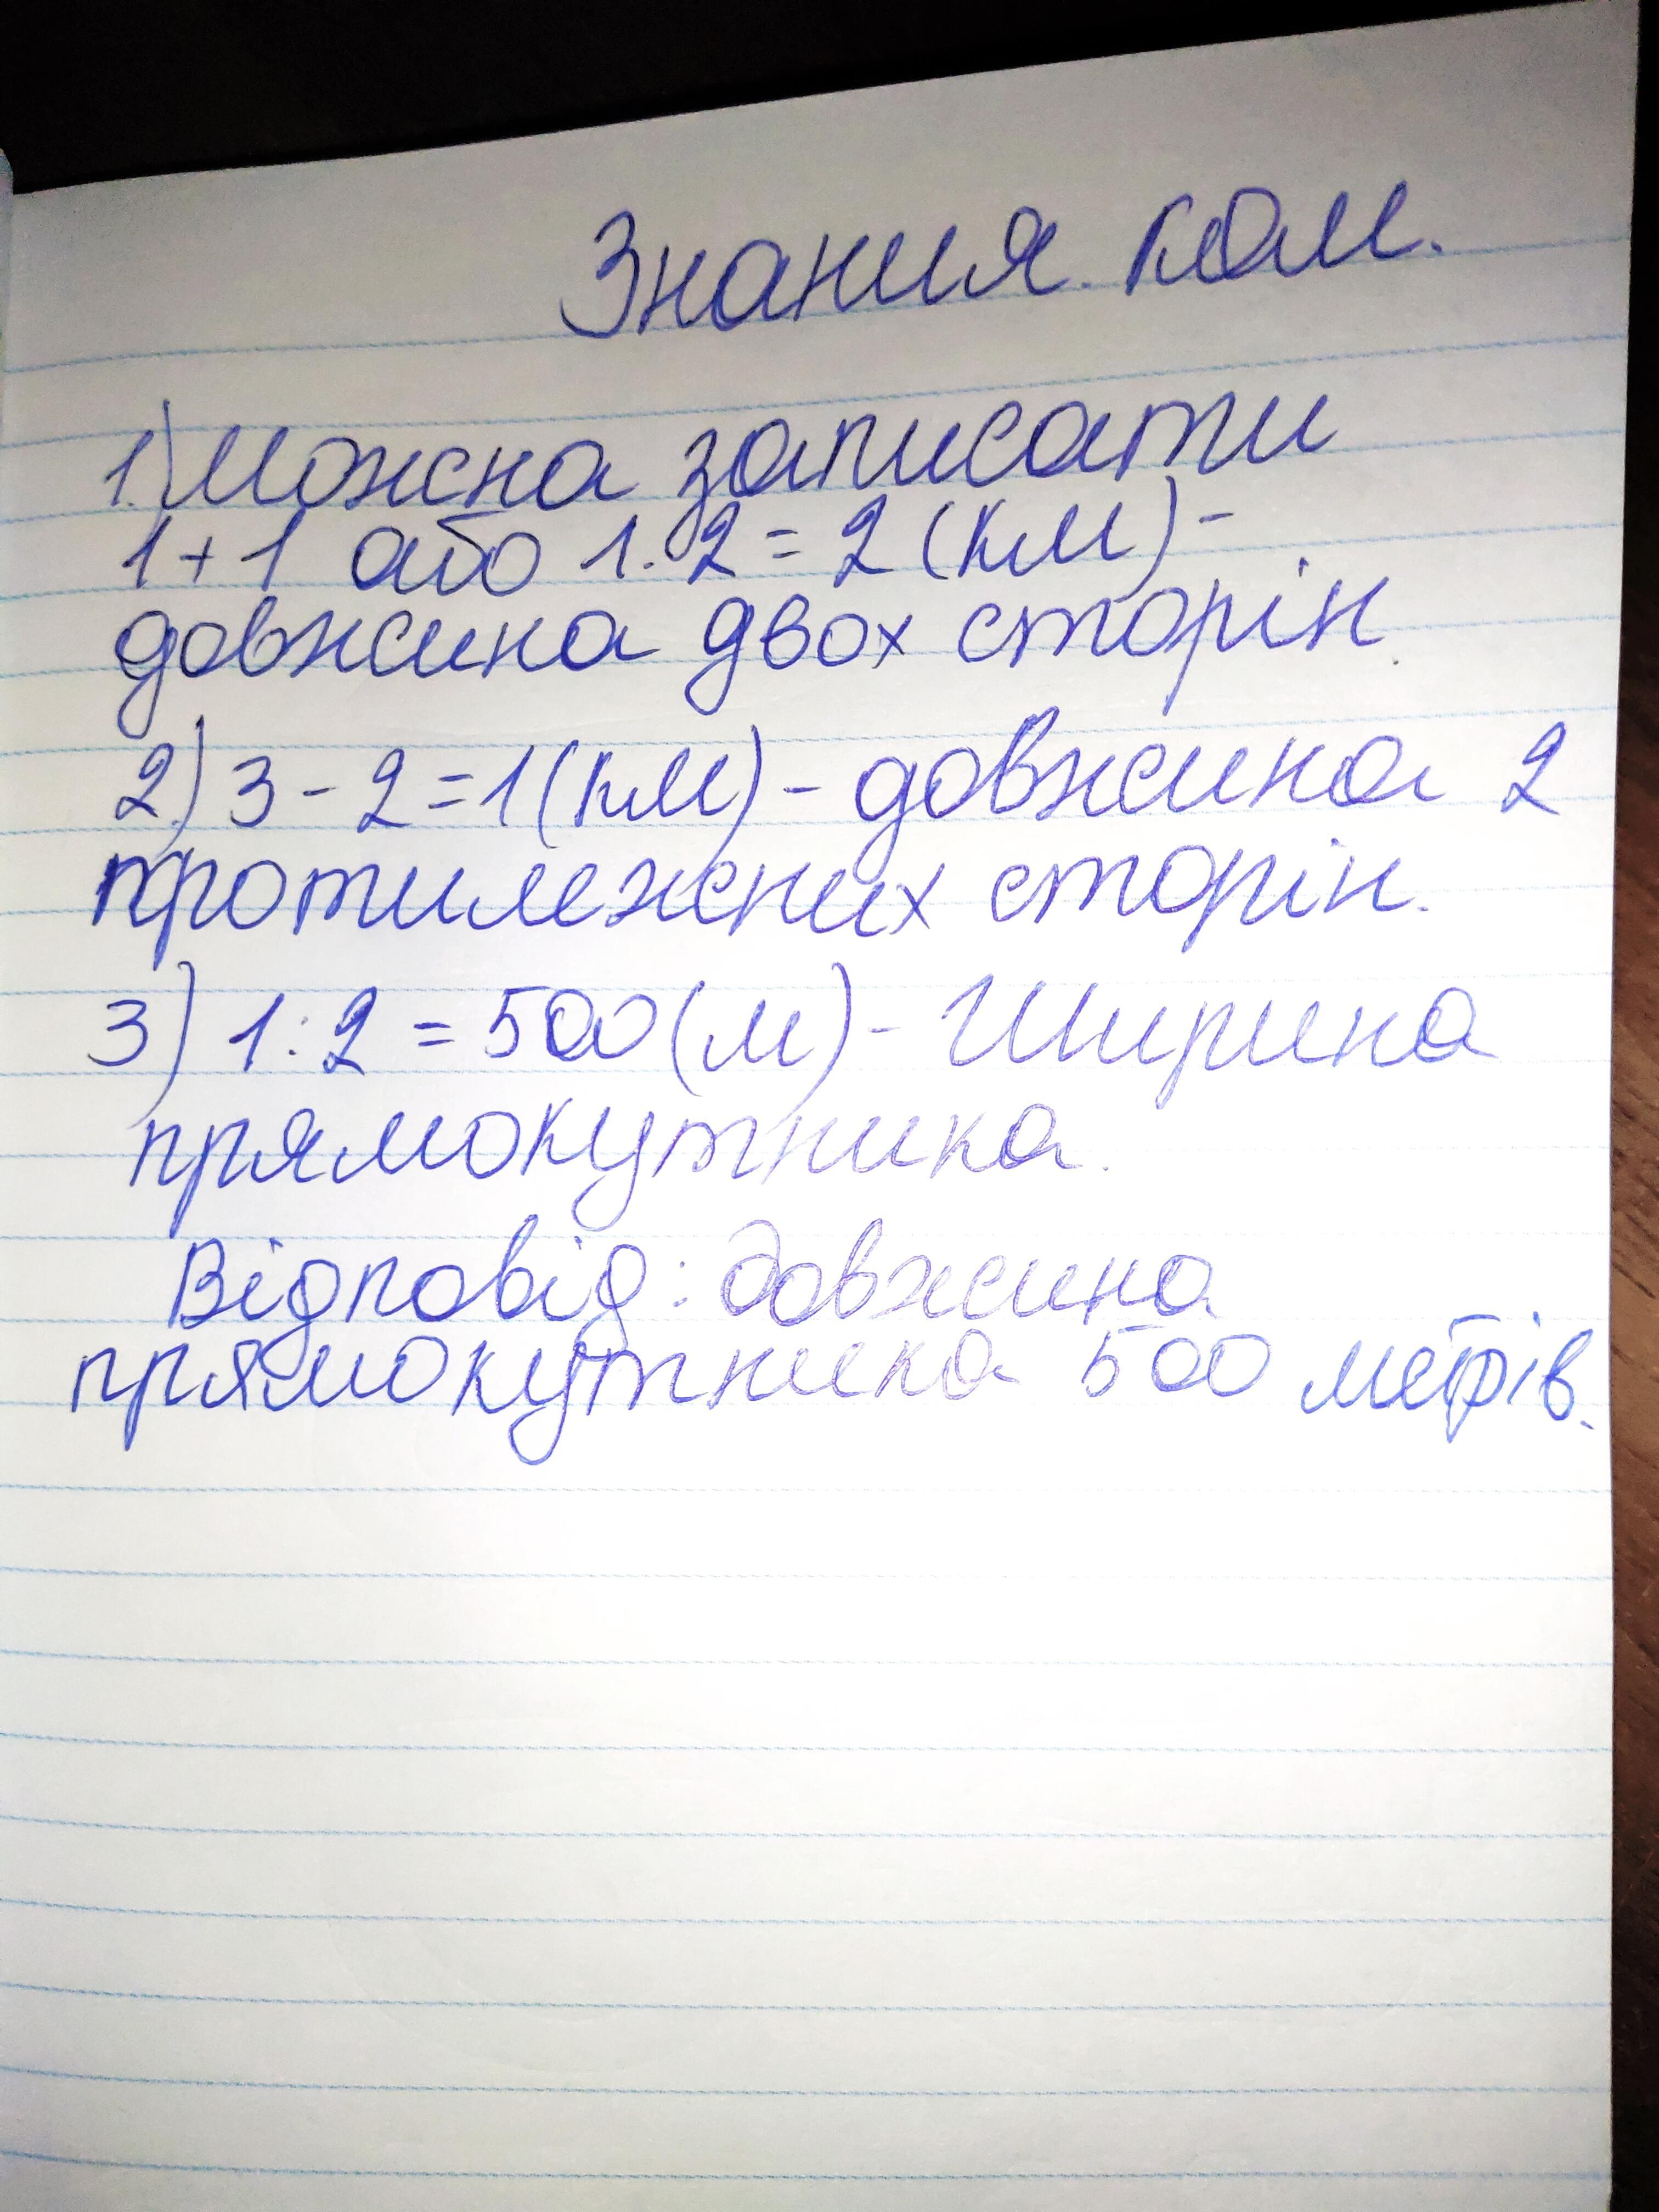 Знания. ком.
1.) Можна записати
1+1 або 1. 2 = 2 (км) -
довжина двох сторін.
2.) 3 - 2 = 1 (км) - довжина 2
протилежних сторін.
3) 1 : 2 = 500 (м) - Ширина
прямокутника.
Відповід: довжина
прямокутника 500 метрів.